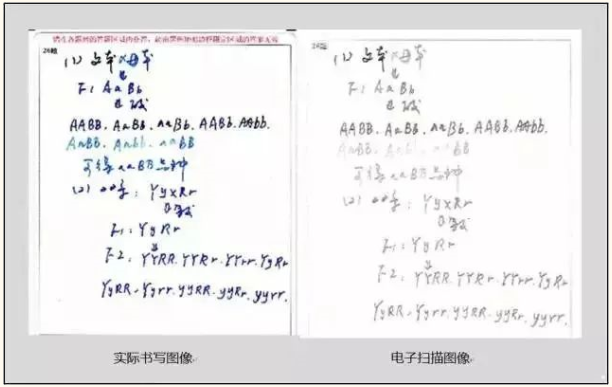 24题
(1) 父本×母本
↓
F1 AaBb
自交
AABB、AaBB、aaBb、AABb、AAbb、
AaBB、Aabb、aaBB
可得aaBB品种
(2) YyxRr
F1:YyRr
F2:YYRR.YYRr.YYrr.YyRr
YyRR、Yyrr.yyRR.yyRr.yyrr.
24题
(1) 父本×母本
↓
F1 AaBb
自交
AABB、AaBB、aaBb、AABb、AAbb、
AaBB、Aabb、aaBB
可得aaBB品种
(2) YyxRr
F1:YyRr
F2:YYRR.YYRr.YYrr.YyRr
YyRR、Yyrr.yyRR.yyRr.yyrr.
实际书写图像
电子扫描图像